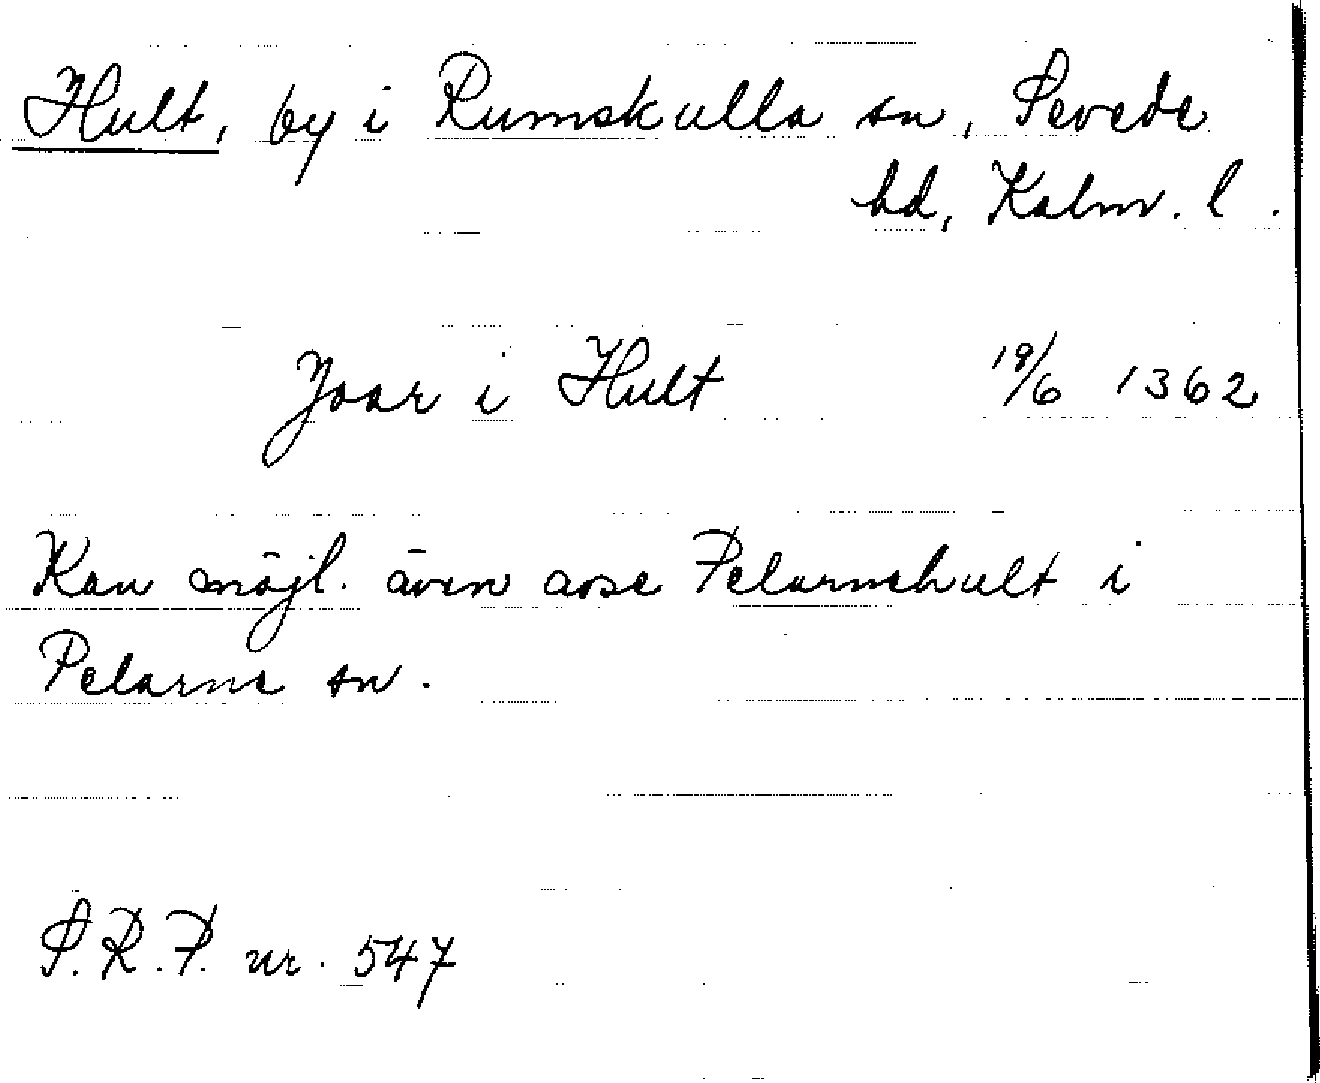 Hult, by i Rumskulla sn, Sevede
hd, Kalm. l.
Joar i Hult 19/6 1362
Kan möjl. även avse Pelarnehult i
Pelarne sn.
S.R.P. nr. 547